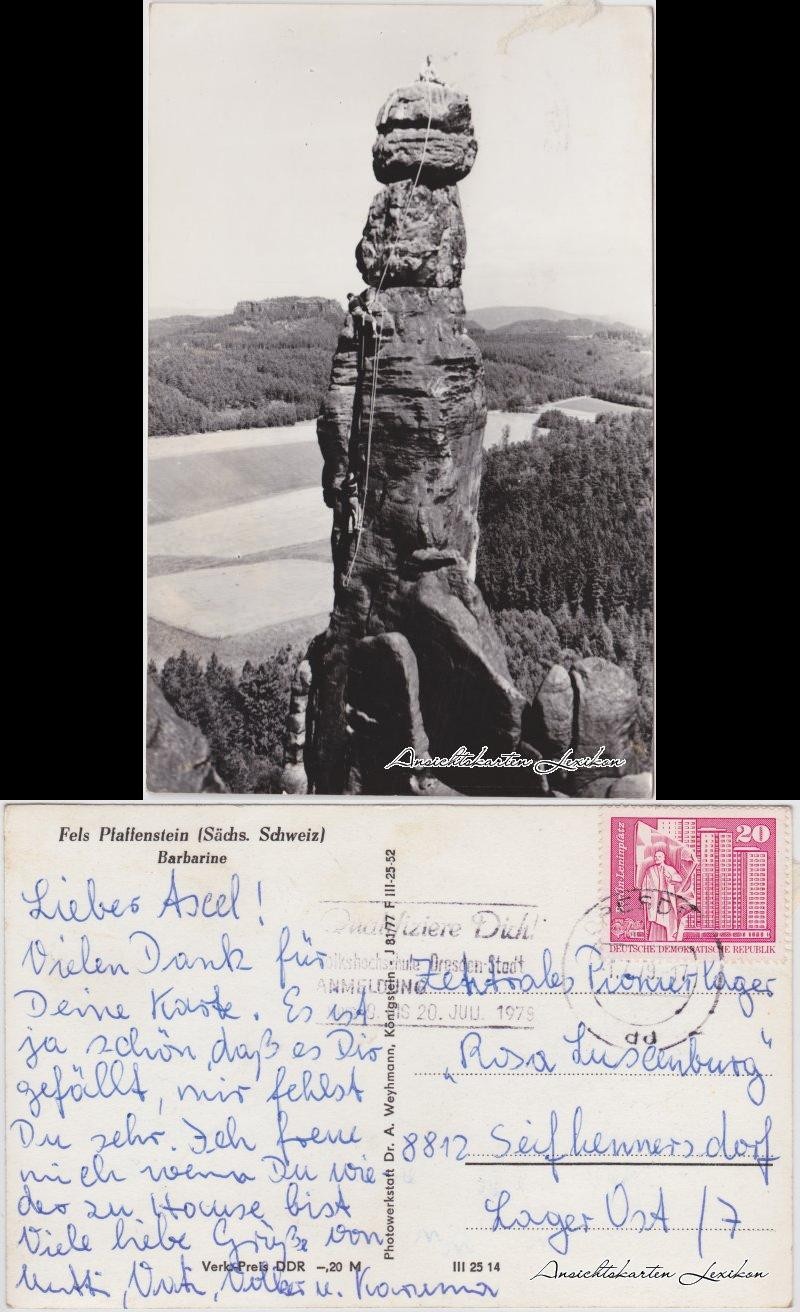 Ansichtskarten Lexikon
Fels Pfaffenstein (Sächs. Schweiz)
Barbarine
Lieber Axel!
Vielen Dank für
Deine Karte. Es ist
ja schön, daß es Dir
gefällt, mir fehlst
Du sehr. Ich freue
mich wenn Du wie
der zu Hause bist
Viele liebe Grüße von
Mutti, Vati, Volker u.
Verk.-Preis DDR –,20 M
Photowerkstatt Dr. A. Weyhmann, Königstein J 81/77 F III-25-52
III 25 14
Qualifiziere Dich!
Volkshochschule Dresden-Stadt
ANMELDUNG
BIS 20. JULI 1979
Berlin-Leninplatz
20
DEUTSCHE DEMOKRATISCHE REPUBLIK
DRESDEN
Zentrales Pionierlager
„Rosa Luxenburg"
8812 Seifhennersdorf
Lager Ost /7
Ansichtskarten Lexikon